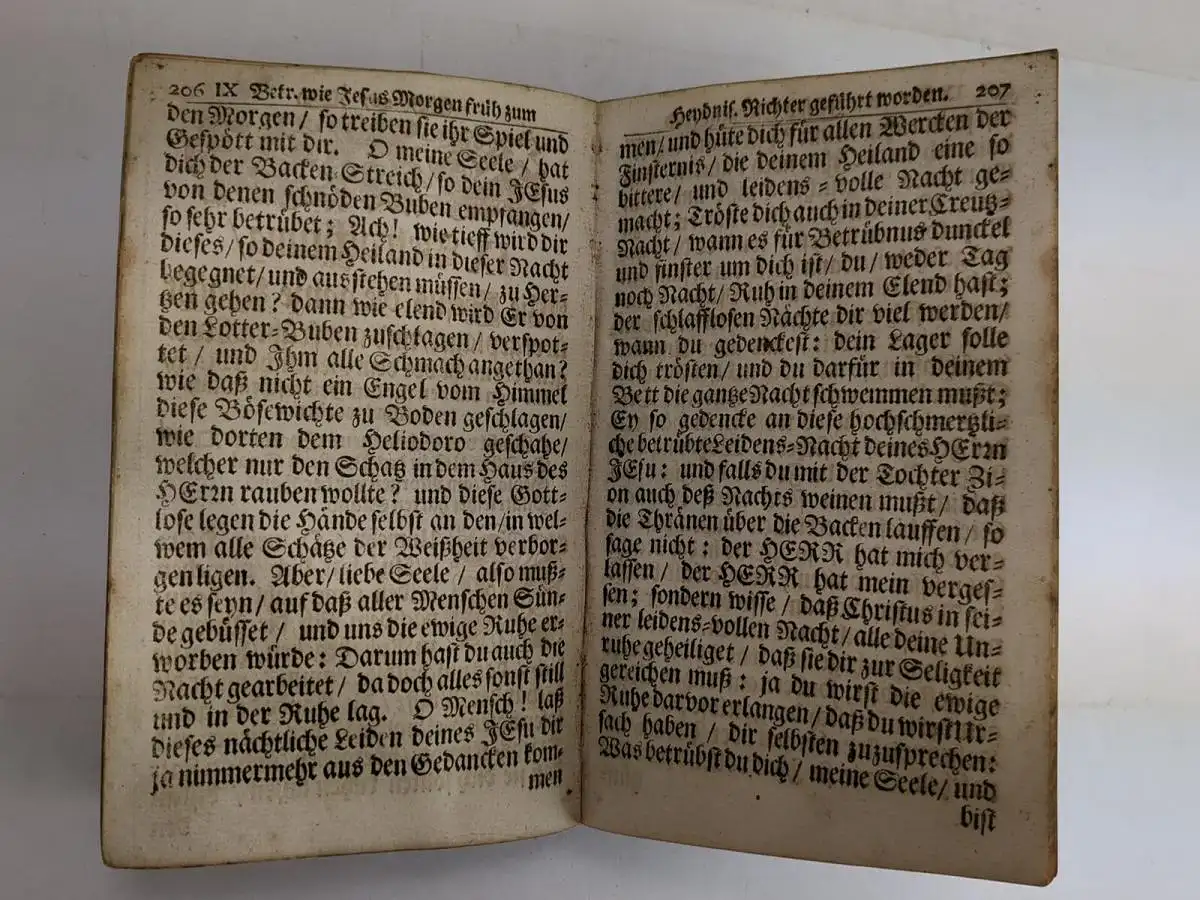 206 IX Betr. wie Jesus Morgen früh zum
den Morgen/ so treiben sie ihr Spiel und
Gespött mit dir. O meine Seele/ hat
dich der Backen-Streich/ so dein JEsus
von denen schnöden Buben empfangen/
so sehr betrübet; Ach! wie tieff wird dir
dieses/ so deinem Heiland in dieser Nacht
begegnet/ und ausstehen müssen/ zu Her-
tzen gehen? dann wie elend wird Er von
den Lotter-Buben zuschlagen/ verspot-
tet/ und Ihm alle Schmach angethan?
wie daß nicht ein Engel vom Himmel
diese Bösewichte zu Boden geschlagen/
wie dorten dem Heliodoro geschahe/
welcher nur den Schatz in dem Haus des
HErrn rauben wollte? und diese Gott-
lose legen die Hände selbst an den/ in wel-
wem alle Schätze der Weißheit verbor-
gen ligen. Aber/ liebe Seele/ also muß-
te es seyn/ auf daß aller Menschen Sün-
de gebüsset/ und uns die ewige Ruhe er-
worben würde: Darum hast du auch die
Nacht gearbeitet/ da doch alles sonst still
und in der Ruhe lag. O Mensch! laß
dieses nächtliche Leiden deines JEsu dir
ja nimmermehr aus den Gedancken kom-
men
Heydnis. Richter geführt worden. 207
men/ und hüte dich für allen Wercken der
Finsternis/ die deinem Heiland eine so
bittere/ und leidens-volle Nacht ge-
macht; Tröste dich auch in deiner Creutz-
Nacht/ wann es für Betrübnus dunckel
und finster um dich ist/ du/ weder Tag
noch Nacht/ Ruh in deinem Elend hast;
der schlafflosen Nächte dir viel werden/
wann du gedenckest: dein Lager solle
dich trösten/ und du darfür in deinem
Bett die gantze Nacht schwemmen mußt;
Ey so gedencke an diese hochschmertzli-
che betrübte Leidens-Nacht deines HErrn
JEsu: und falls du mit der Tochter Zi-
on auch deß Nachts weinen mußt/ daß
die Thränen über die Backen lauffen/ so
sage nicht: der HERR hat mich ver-
lassen/ der HERR hat mein verges-
sen; sondern wisse/ daß Christus in sei-
ner leidens-vollen Nacht/ alle deine Un-
ruhe geheiliget/ daß sie dir zur Seligkeit
gereichen muß: ja du wirst die ewige
Ruhe darvor erlangen/ daß du wirst Ur-
sach haben/ dir selbsten zuzusprechen:
Was betrübst du dich/ meine Seele/ und
bist